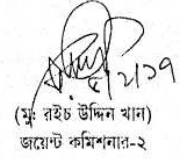 (মু: রইচ উদ্দিন খান)
জয়েন্ট কমিশনার-২